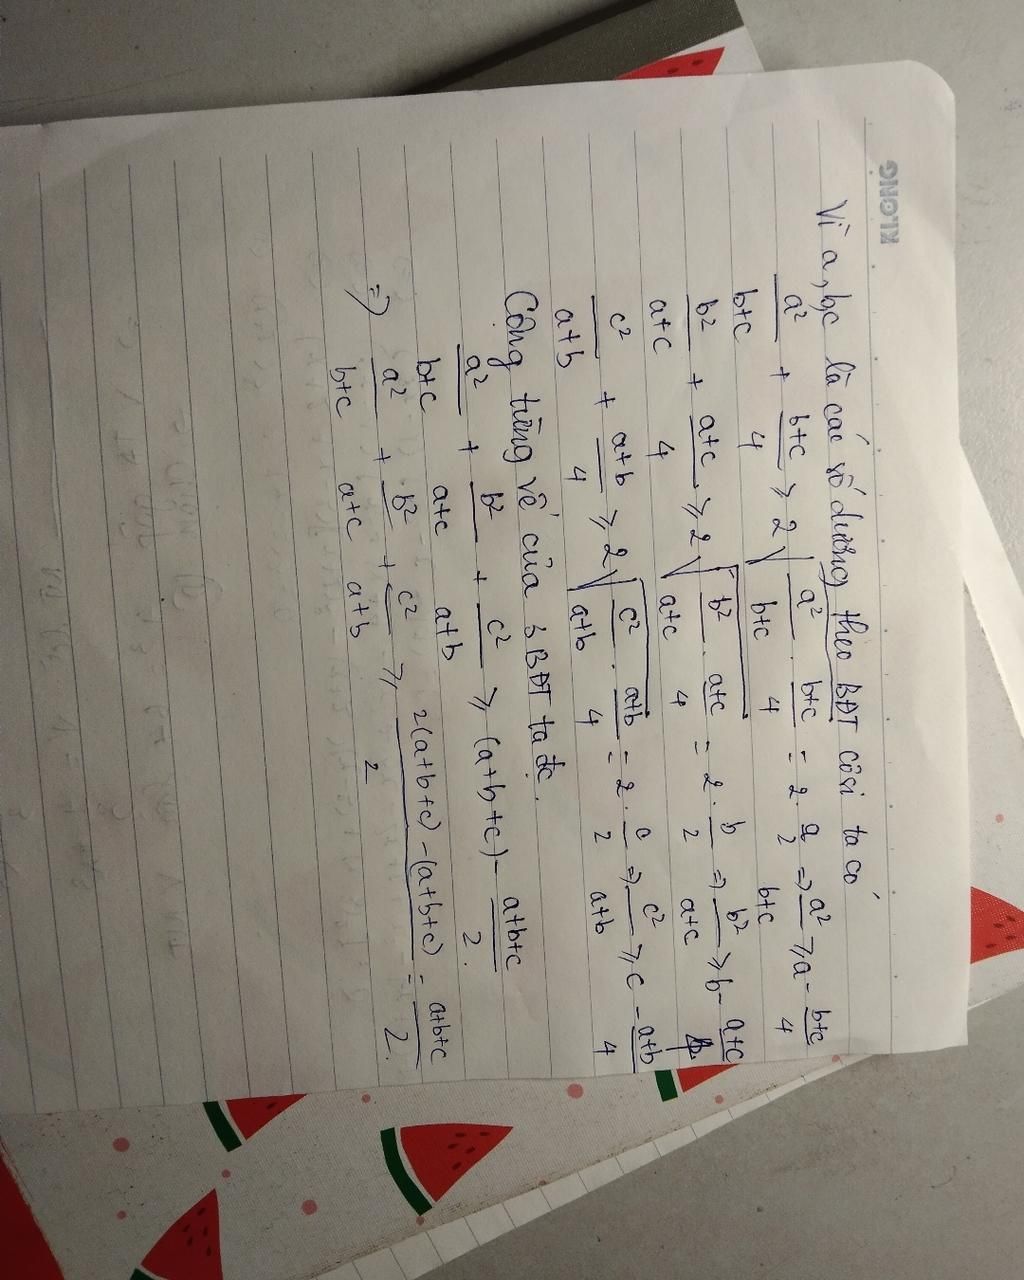 KLONG
Vì a, b, c là các số dương theo BĐT côsi ta có
a²/(b+c) + (b+c)/4 ⩾ 2√(a²/(b+c) · (b+c)/4) = 2 · a/2 ⇒ a²/(b+c) ⩾ a - (b+c)/4
b²/(a+c) + (a+c)/4 ⩾ 2√(b²/(a+c) · (a+c)/4) = 2 · b/2 ⇒ b²/(a+c) ⩾ b - (a+c)/4
c²/(a+b) + (a+b)/4 ⩾ 2√(c²/(a+b) · (a+b)/4) = 2 · c/2 ⇒ c²/(a+b) ⩾ c - (a+b)/4
Công từng vế của 3 BĐT ta đc.
a²/(b+c) + b²/(a+c) + c²/(a+b) ⩾ (a+b+c) - (a+b+c)/2.
⇒ a²/(b+c) + b²/(a+c) + c²/(a+b) ⩾ (2(a+b+c) - (a+b+c))/2 = (a+b+c)/2.